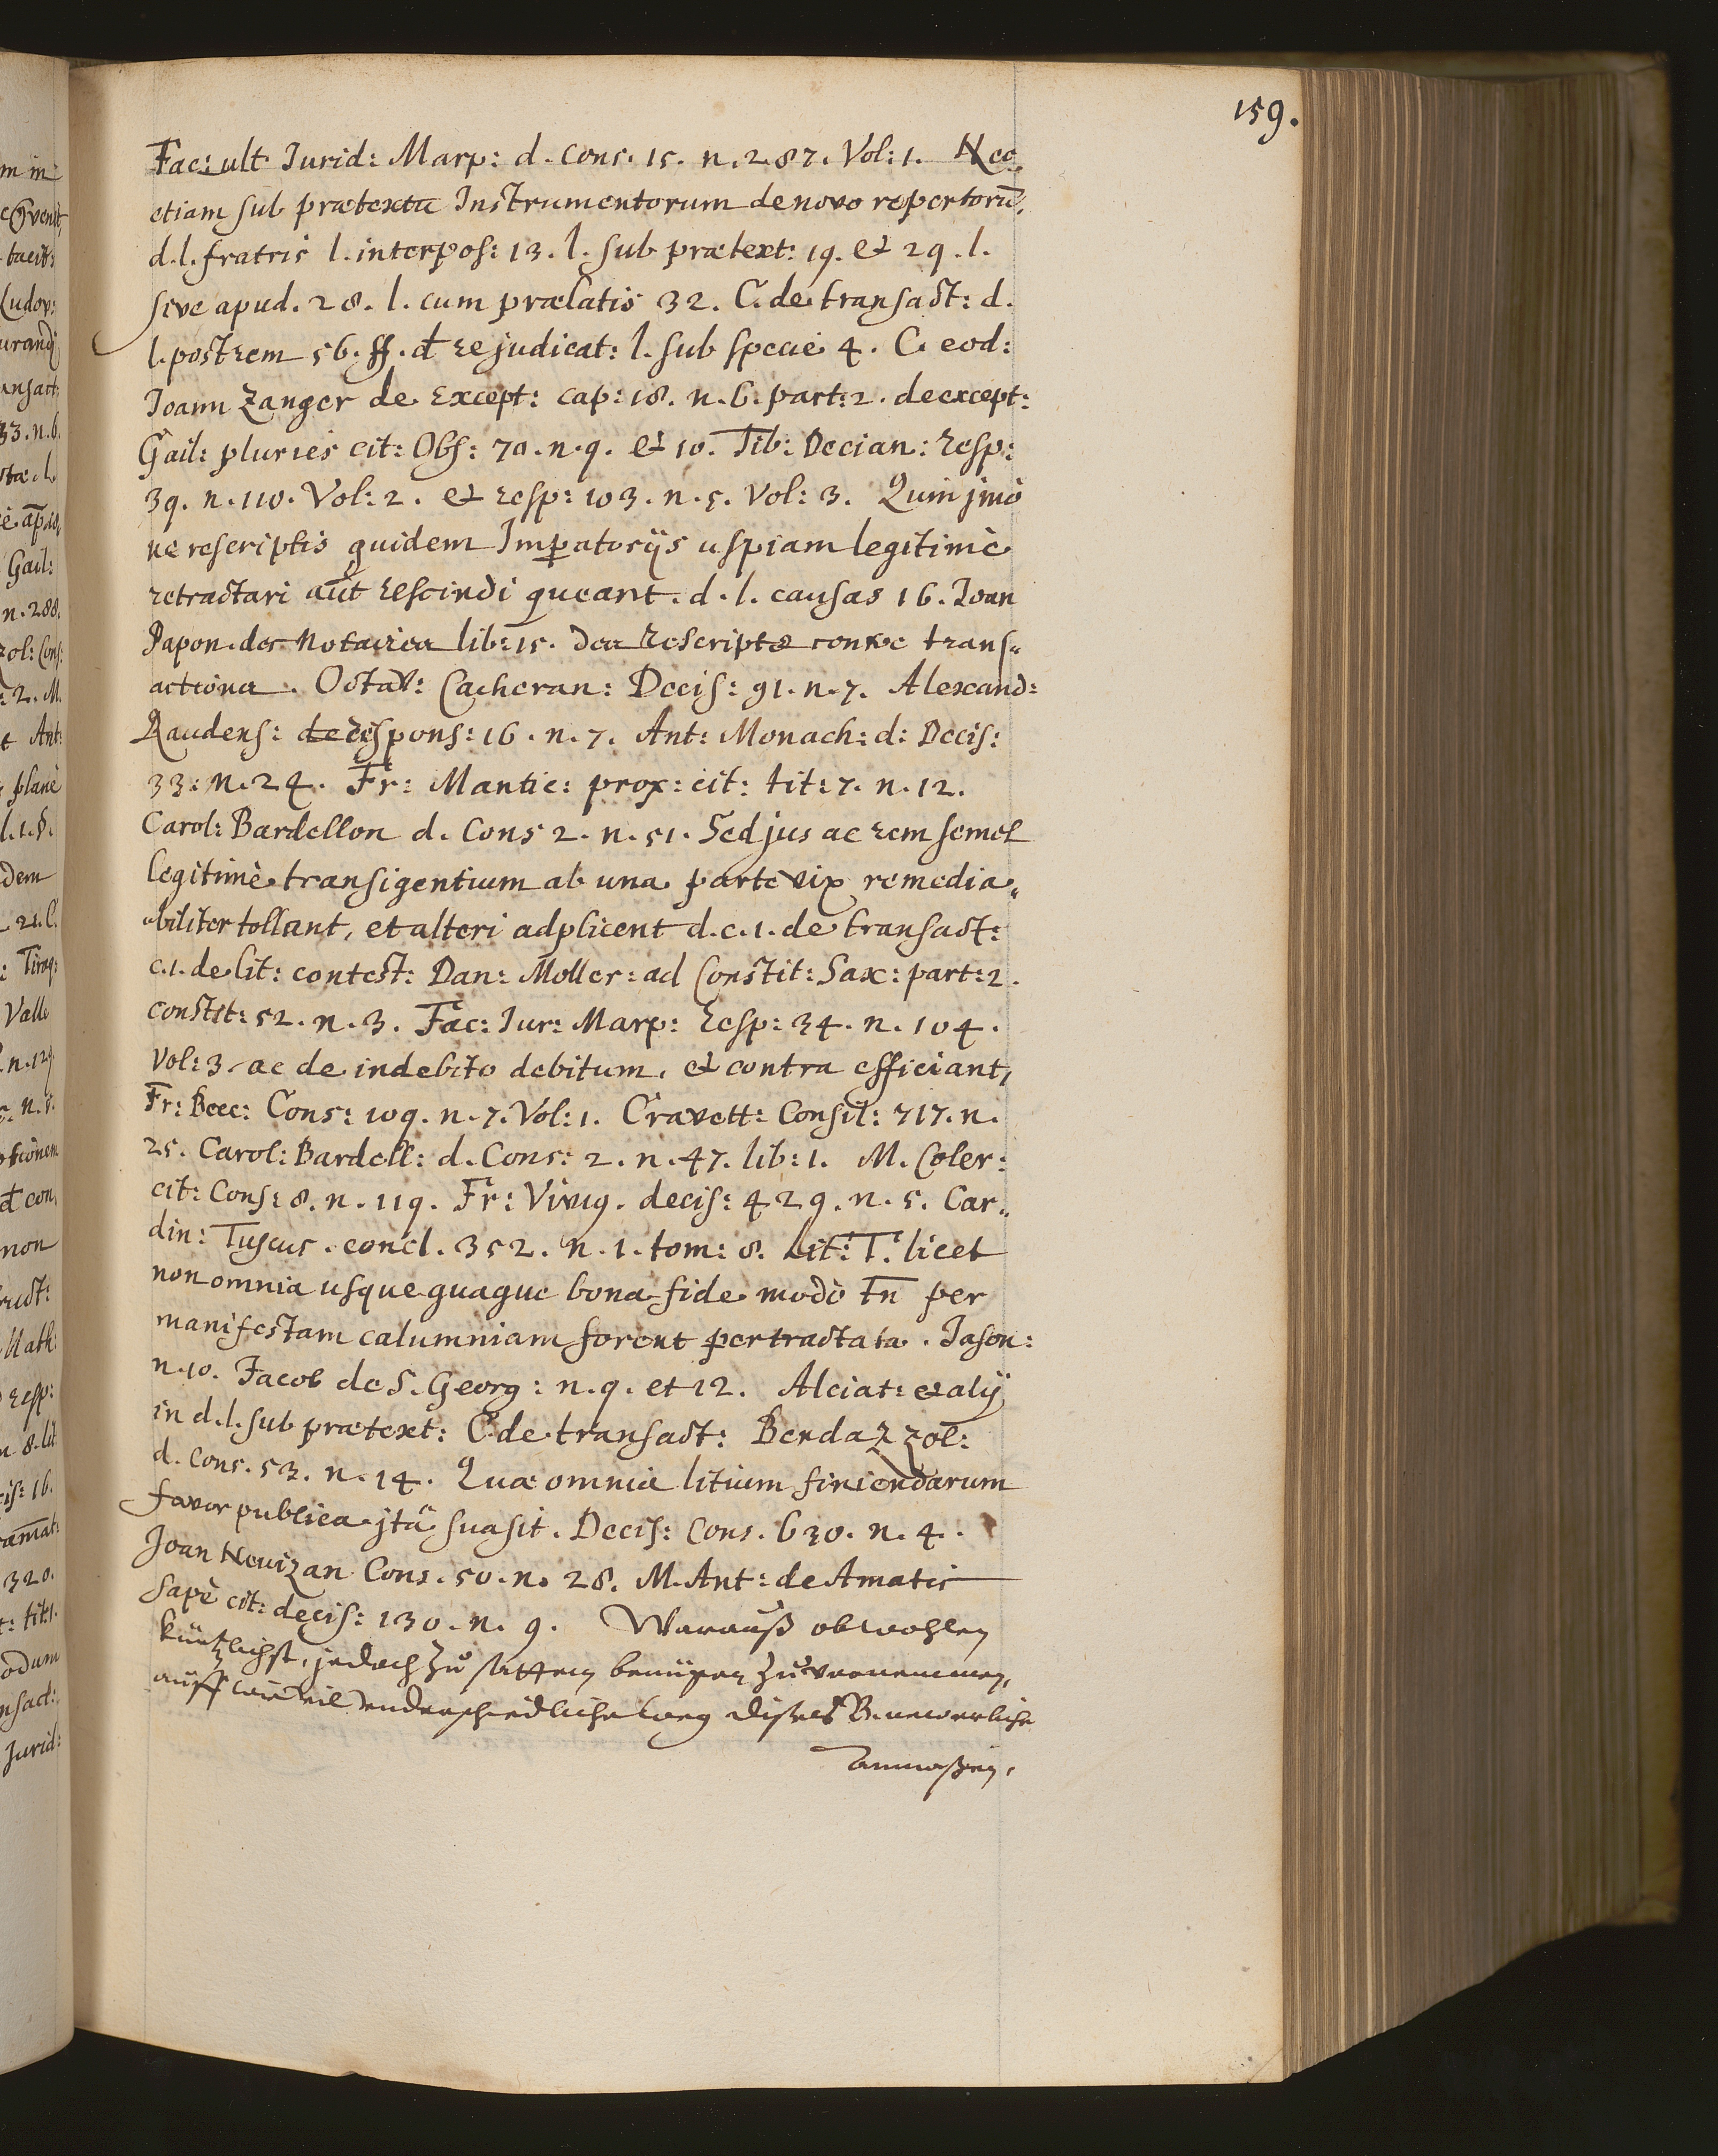 159.
Fac: ult Jurid: Marp: d. cons. 15. n. 287. Vol: 1. Nec
etiam sub prætextu Instrumentorum de novo repertorū,
d. l. fratris l. interpos: 13. l. sub prætext: 19. et 29. l.
sive apud. 28. l. cum prælatis 32. C. de transact: d.
l. post rem 56. ff. d re judicat: l. sub specie 4. C. eod:
Joann Zanger de Except: cap: 18. n. 6. part: 2. de except:
Gail: pluries cit: Obs: 70. n. 9. et 10. Tib: Decian: resp:
39. n. 110. Vol: 2. et resp: 103. n. 5. Vol: 3. Quin jmò
ne rescriptis quidem Impatorijs uspiam legitimè
retractari aut rescindi queant. d. l. causas 16. Joan
Papon. des Notaires lib: 15. des rescripts contre trans„
actions. Octav: Cacheran: Decis: 91. n. 7. Alexand:
Raudens: de respons: 16. n. 7. Ant: Monach: d: Decis:
33: n. 24. Fr: Mantic: prox: cit: tit: 7. n. 12.
Carol: Bardellon d. Cons 2. n. 51. Sed jus ac rem semel
legitimè transigentium ab una parte vix remedia„
biliter tollant, et alteri adplicent d. c. 1. de transact:
c. 1. de lit: contest: Dan: Moller: ad Constit: Sax: part: 2.
constit: 52. n. 3. Fac: Jur: Marp: resp: 34. n. 104.
Vol: 3. ac de indebito debitum. et contra efficiant,
Fr: Becc: Cons: 109. n. 7. Vol: 1. Cravett: Consil: 717. n.
25. Carol: Bardell: d. Cons: 2. n. 47. lib: 1. M. Coler:
cit: Cons: 8. n. 119. Fr: Viviq. decis: 429. n. 5. Car„
din: Tuscus. concl. 352. n. 1. tom: 8. Lit: T. licet
non omnia usque quaque bona fide modò tn̄ per
manifestam calumniam forent pertractata. Jason:
n. 10. Jacob de S. Georg: n. 9. et 12. Alciat: et alij
in d. l. sub prætext: C. de transact: Bendazzol:
d. cons. 53. n. 14. Quæ omnia litium finiendarum
favor publica jtà suasit. Decis: Cons. 630. n. 4.
Joan Nevizan Cons. 50. n. 28. M. Ant: de Amatis
sæpè cit: decis: 130. n. 9. Warauß obwohlen
kürtzlichst, jedoch zu sattem benügen zuvernemmen,
auff wie viel underschiedliche weg dises
anmaßen,